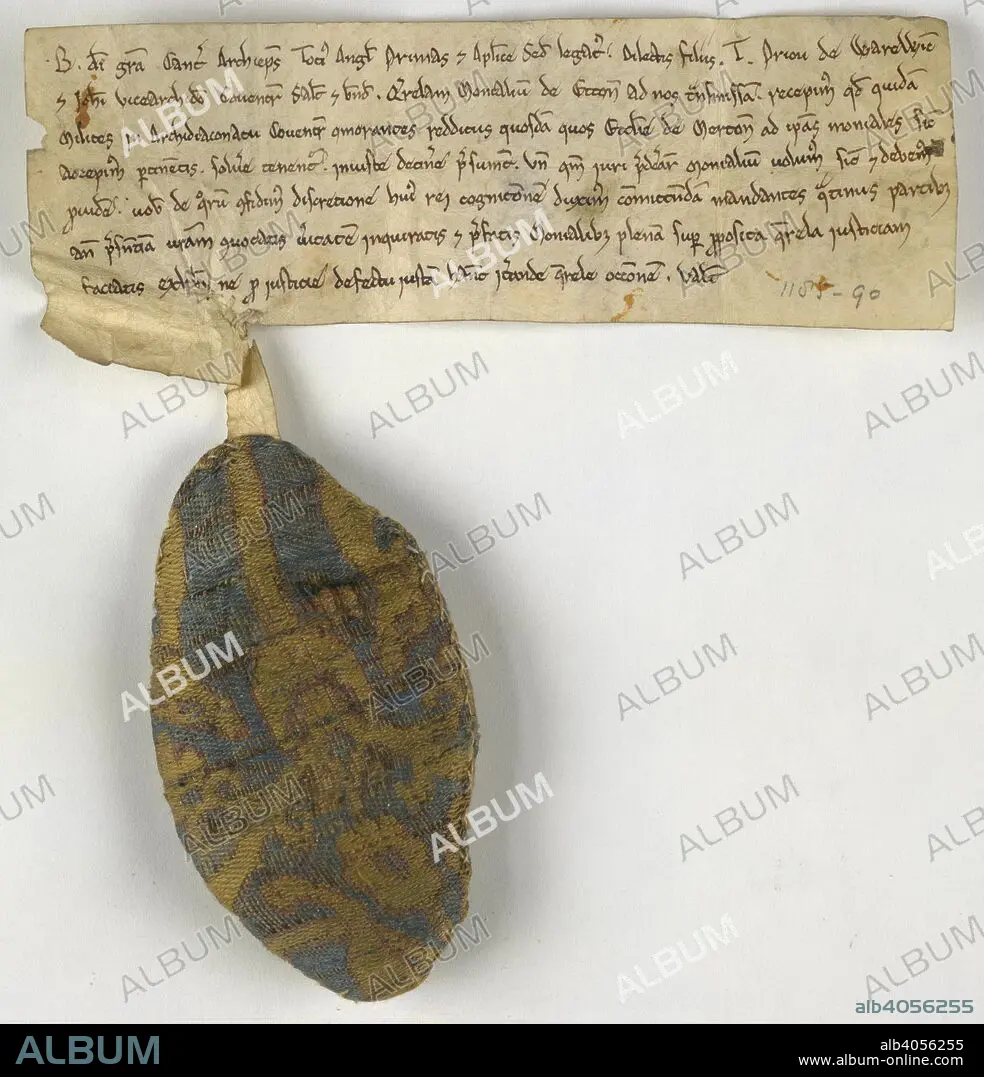 B. dī grā Cant̄ Archiep̄s Toti᷒ Angl̄ Primas ⁊ Apl̄ice Sed̄ legat᷒. Dilectis filiis. T. Priori de Warewic̄
⁊ Joh̄i vicearch do Couentr̄ Sal̄t ⁊ b̄nd. Qrelam Monialiū de Etton̄ ad nos t̄nsmissā. recepim᷒ qd quidā
Milites in Archidiaconatu Couentr̄ 9morantes redditus quosdā quos Ecclie de Merton̄ ad ip̄as moniales sic
Accepim᷒ p̄tinentis. solue tenent᷒. iniuste detine p̄sumt̄. Vn̄ qm̄ iuri p̄dc̄ar̄ Monialiū uolum᷒ sic̄ ⁊ debem᷒
ꝓuide. uob̄ de qrū 9fidim᷒ discretione hui᷒ rei cognitōnē duxim᷒ cōmittendā mandantes qtinus partib᷒
an̄ p̄sentiā uram̄ quocatis uitatē inquiratis ⁊ p̄fatis Monialib᷒ plenā sup̄ ꝓposita qrela iusticiam
faciatis exhib̄i ne ꝓ iusticie defectu iustā hāt iterande qrele occōnē. Val̄t
1185-90
ALBUM
alb4056255
ALBUM
alb4056255
www.album-online.com